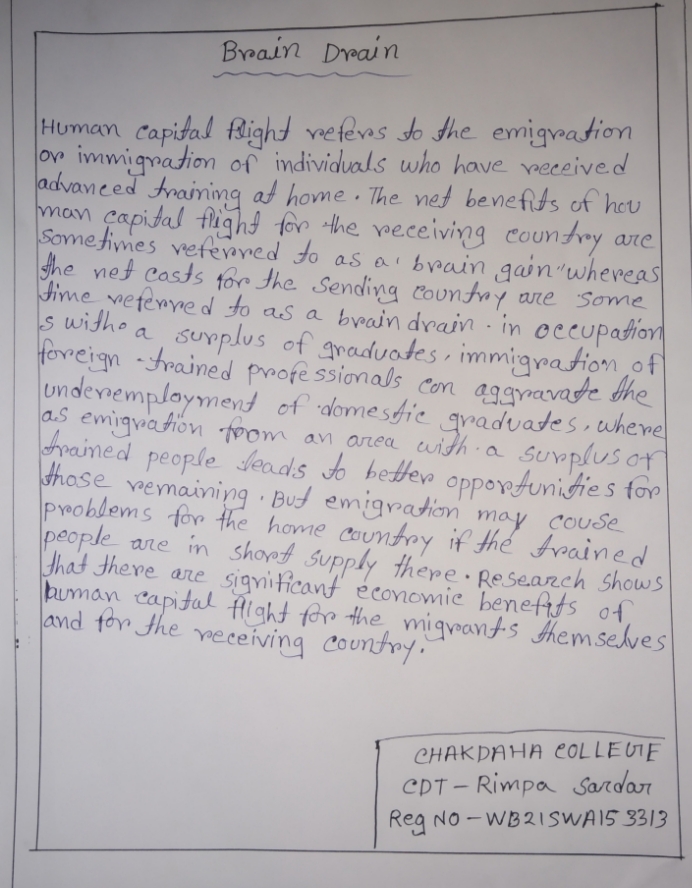 Brain Drain
Human capital flight refers to the emigration
or immigration of individuals who have received
advanced training at home. The net benefits of hou
man capital flight for the receiving country are
sometimes referred to as a "brain gain" whereas
the net costs for the sending country are some
time referred to as a brain drain. in occupation
s with a surplus of graduates, immigration of
foreign-trained professionals con aggravate the
underemployment of domestic graduates, where
as emigration from an area with a surplus of
trained people leads to better opportunities for
those remaining. But emigration may couse
problems for the home country if the trained
people are in short supply there. Research shows
that there are significant economic benefits of
human capital flight for the migrants themselves
and for the receiving country.
CHAKDAHA COLLEGE
CDT - Rimpa Sardar
Reg NO - WB21SWA153313